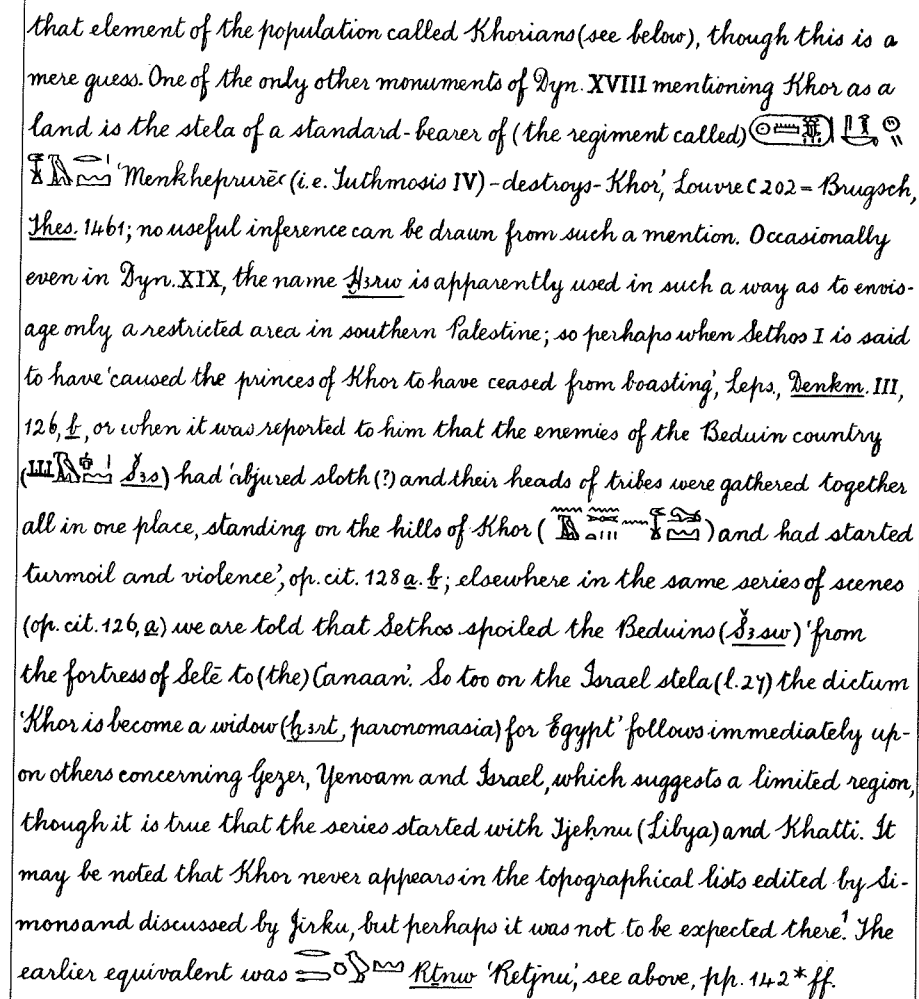 that element of the population called Khorians (see below), though this is a
mere guess. One of the only other monuments of Dyn. XVIII mentioning Khor as a
land is the stela of a standard-bearer of (the regiment called)
'Menkheprurēc (i.e. Tuthmosis IV)-destroys-Khor', Louvre C 202 = Brugsch,
Thes. 1461; no useful inference can be drawn from such a mention. Occasionally
even in Dyn. XIX, the name Ḫ3rw is apparently used in such a way as to envis-
age only a restricted area in southern Palestine; so perhaps when Sethos I is said
to have 'caused the princes of Khor to have ceased from boasting', Leps., Denkm. III,
126, b, or when it was reported to him that the enemies of the Beduin country
( Š3s) had 'abjured sloth (?) and their heads of tribes were gathered together
all in one place, standing on the hills of Khor ( ) and had started
turmoil and violence', op. cit. 128 a. b; elsewhere in the same series of scenes
(op. cit. 126, a) we are told that Sethos spoiled the Beduins (Š3sw) 'from
the fortress of Selē to (the) Canaan'. So too on the Israel stela (l. 27) the dictum
'Khor is become a widow (ḫ3rt, paronomasia) for Egypt' follows immediately up-
on others concerning Gezer, Yenoam and Israel, which suggests a limited region,
though it is true that the series started with Tjeḥnu (Libya) and Khatti. It
may be noted that Khor never appears in the topographical lists edited by Si-
mons and discussed by Jirku, but perhaps it was not to be expected there.¹ The
earlier equivalent was Rṯnw 'Retjnu', see above, pp. 142* ff.